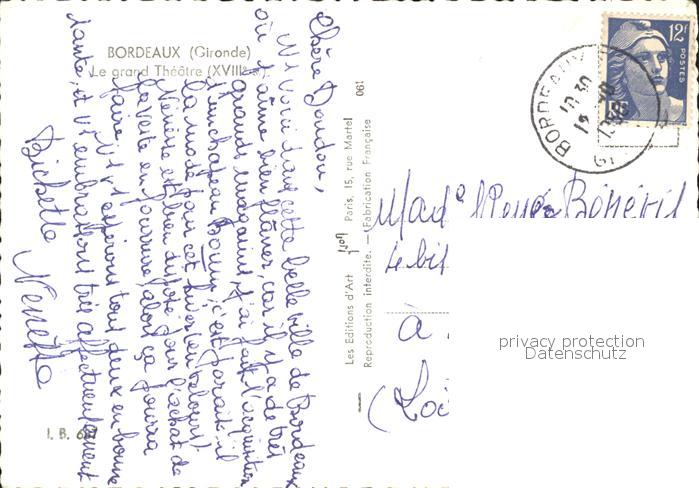 BORDEAUX (Gironde)
Le grand Théâtre (XVIIIe s.)
Chère Doudou,
Ns voici dans cette belle ville de Bordeaux
où j'aime bien flâner, car il y a de très
grands magasins. J'ai fait l'acquisition
d'un chapeau Bonnie, c'est paraît-il
la mode pour cet hiver (en velours).
Nénesse est bien disposé pour l'achat de
la veste en fourrure, alors ça pourra
faire. Ns vs espérons tous deux en bonne
santé, et vs embrassons très affectueusement
Bichette Nenette
I. B.
Les Editions d'Art Yvon Paris, 15, rue Martel
Reproduction interdite. — (Fabrication Française
061
12F
POSTES
RF
BORDEAUX
GI
Mad
4 bis
à
(Loi
privacy protection
Datenschutz